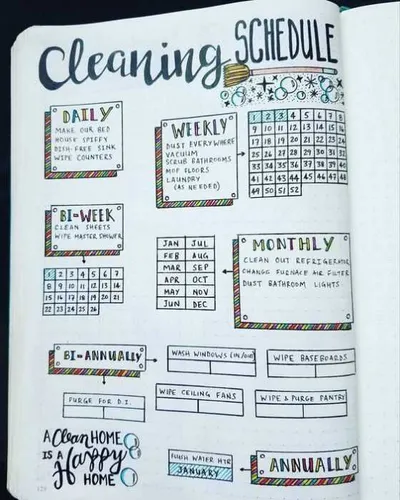 Cleaning SCHEDULE
DAILY
MAKE OUR BED
HOUSE SPIFFY
DISH-FREE SINK
WIPE COUNTERS
WEEKLY
DUST EVERYWHERE
VACUUM
SCRUB BATHROOMS
MOP FLOORS
LAUNDRY
(AS NEEDED)
1 2 3 4 5 6 7 8
9 10 11 12 13 14 15 16
17 18 19 20 21 22 23 24
25 26 27 28 29 30 31 32
33 34 35 36 37 38 39 40
41 42 43 44 45 46 47 48
49 50 51 52
BI-WEEK
CLEAN SHEETS
WIPE MASTER SHOWER
1 2 3 4 5 6 7
8 9 10 11 12 13 14
15 16 17 18 19 20 21
22 23 24 25 26
JAN JUL
FEB AUG
MAR SEP
APR OCT
MAY NOV
JUN DEC
MONTHLY
CLEAN OUT REFRIGERATOR
CHANGE FURNACE AIR FILTER
DUST BATHROOM LIGHTS
BI-ANNUALLY
WASH WINDOWS (IN/OUT)
WIPE BASEBOARDS
PURGE FOR D.I.
WIPE CEILING FANS
WIPE & PURGE PANTRY
A Clean HOME
IS A Happy
HOME
FLUSH WATER HTR
JANUARY
ANNUALLY